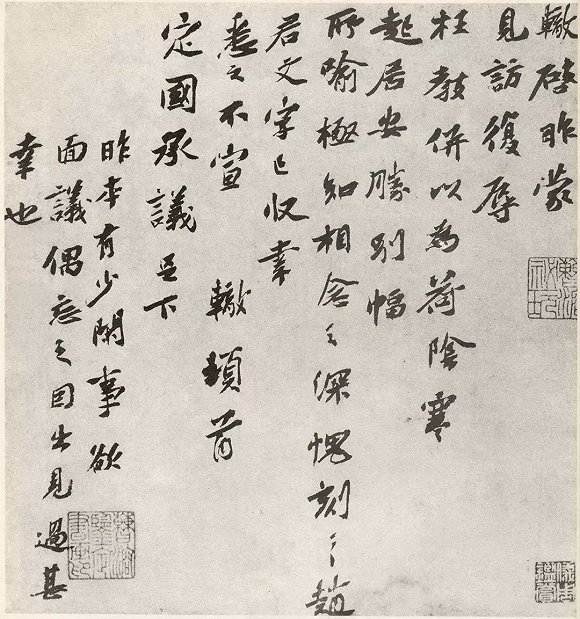 轍啓昨蒙
見訪復辱
枉教併以為荷陰寒
起居安勝別幅
所喻極知相念之深愧刻〻趙
君文字已收幸
悉之不宣　轍頓首
定國承議足下
昨本有少閑事欲
面議偶忘之因出見過甚
幸也